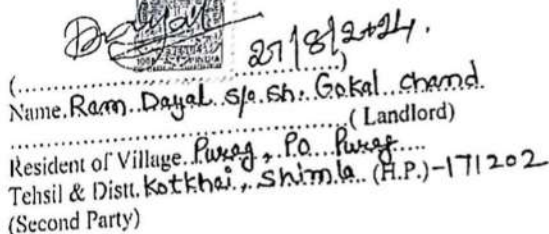 Dayal
27/8/2024.
(....................................................)
Name. Ram Dayal S/o. Sh. Gokal chand
....................................................( Landlord)
Resident of Village. Purag, Po Purag
Tehsil & Distt. Kotkhai, Shimla (H.P.)-171202
(Second Party)